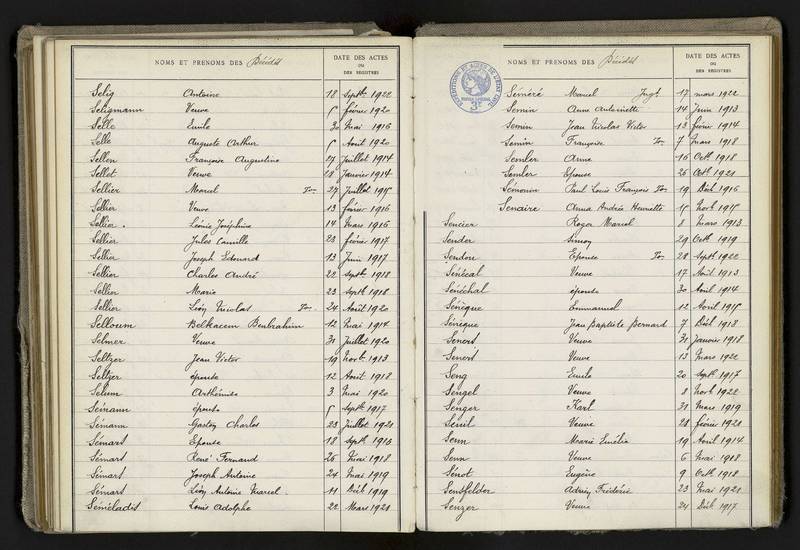 NOMS ET PRENOMS DES Décédés DATE DES ACTES OU DES REGISTRES
Selig Antoine 18 Septbre 1922
Seligmann Veuve 5 février 1920
Selle Emile 30 Mai 1916
Selle Auguste Arthur 5 Août 1920
Sellen Françoise Augustine 27 Juillet 1914
Sellet Veuve 28 Janvier 1914
Sellier Marcel Ton 27 Juillet 1915
Sellier Veuve 13 février 1916
Sellier Léonie Joséphine 14 Mars 1916
Sellier Jules Camille 23 février 1917
Sellier Joseph Edouard 13 Juin 1917
Sellier Charles André 22 Septbre 1918
Sellier Marie 23 Septbre 1918
Sellier Léon Nicolas Ton 24 Août 1920
Selloum Belkacem Benbrahim 12 Mai 1914
Selmer Veuve 31 Juillet 1920
Seltzer Jean Victor 19 Novbre 1913
Seltzer épouse 12 Août 1918
Selum Arthémise 3 Mai 1920
Sémann épouse 5 Septbre 1917
Sémann Gaston Charles 23 Juillet 1921
Sémart Epouse 18 Septbre 1913
Sémart René Fernand 26 Mai 1918
Sémart Joseph Antoine 24 Mai 1919
Sémart Léon Antoine Marcel 11 Décbre 1919
Séméladis Louis Adolphe 22 Mars 1921
NOMS ET PRENOMS DES Décédés DATE DES ACTES OU DES REGISTRES
EXPEDITIONS ET ACTES DE L'ETAT CIVIL
Séméré Marcel Jugt 17 mars 1922
Semin Anne Antoinette 14 Juin 1913
Semin Jean Nicolas Victor 13 février 1914
Semin Françoise Ton 7 Mars 1918
Semler Anne 16 Octbre 1918
Semler Epouse 26 Octbre 1921
Sémonin Paul Louis François Ton 19 Décbre 1916
Senaire Anna Andréa Henriette 15 Novbre 1915
Sencier Roger Marcel 8 Mars 1913
Sender Simon 29 Octbre 1919
Sendore Epouse Ton 28 Septbre 1922
Sénécal Veuve 17 Août 1913
Sénéchal épouse 30 Août 1914
Sénèque Emmanuel 12 Avril 1915
Sénèque Jean Baptiste Bernard 7 Décbre 1918
Senert Veuve 31 Janvier 1918
Senert Veuve 13 Mars 1922
Seng Emile 20 Septbre 1917
Sengel Veuve 8 Novbre 1922
Senger Karl 31 Mars 1919
Senil Veuve 28 février 1921
Senn Marie Emélie 19 Avril 1914
Senn Veuve 6 Mai 1918
Sénot Eugène 9 Octbre 1918
Sensfelder Adrien Frédéric 23 Mai 1921
Senzer Veuve 24 Décbre 1917